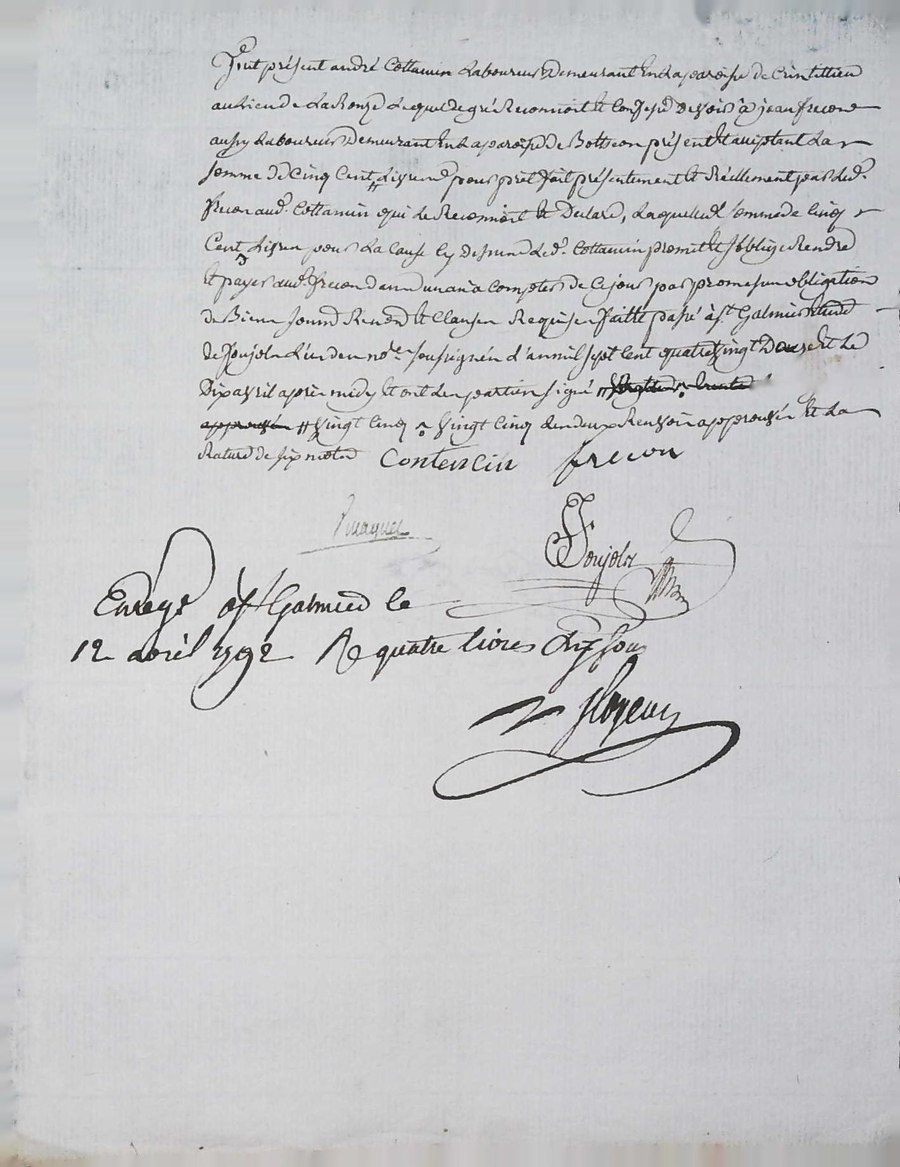 fut présent andré Cottancin Laboureur Demeurant En La paroisse de Crintillieu
au Lieu de La Ronze Lequel de gré Reconnoit et Confesse Devoir à jean frecon
aussy Laboureur Demeurant En La paroisse de Bottheon présent et acceptant La
somme de Cinq Cent Livres pour prêt fait présentement et Réellement par Led.
frecon aud. Cottancin qui Le Reconnoit et Declare, Laquelle sommede Cinq
Cent Livres pour La Cause Cy dessus Led. Cottancin promet et s'oblige Rendre
et payer aud. frecon dans un an à Compter de Ce jour par promesse obligation
de Biens soumis Renon et Clauses Requises faitte passé à st Galmier Etude
de Soujol L'un des nore. soussignés L'an mil sept Cent quatrevingt Douze et Le
Dix avril après midy et ont Les parties signé #
# vingt Cinq vingt Cinq Les deux Renvois approuvés et La
Rature de six mots Contencin frecon
Soujol
Enregé à st Galmier le
12 avril 1792 R quatre livres dix sous